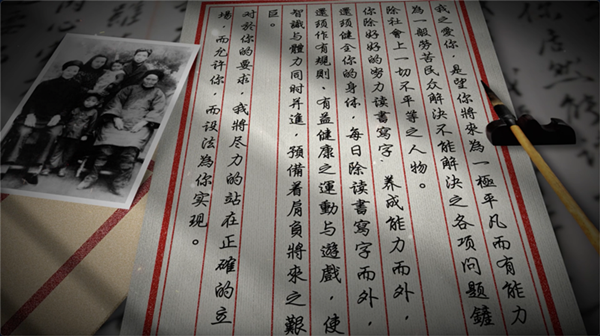 我之愛你，是望你將來為一極平凡而有能力
為一般勞苦民众解决不能解决之各项问题鏟
除社會上一切不平等之人物。
你除好好的努力读書寫字，养成能力而外，
還须健全你的身体，每日除读書寫字而外，
還须作有規則、有益健康之運動与遊戲，使
智識与體力同时并進，預備着肩負將來之艱
巨。
对於你的要求，我將尽力的站在正確的立
場，而允許你，而设法為你实现。